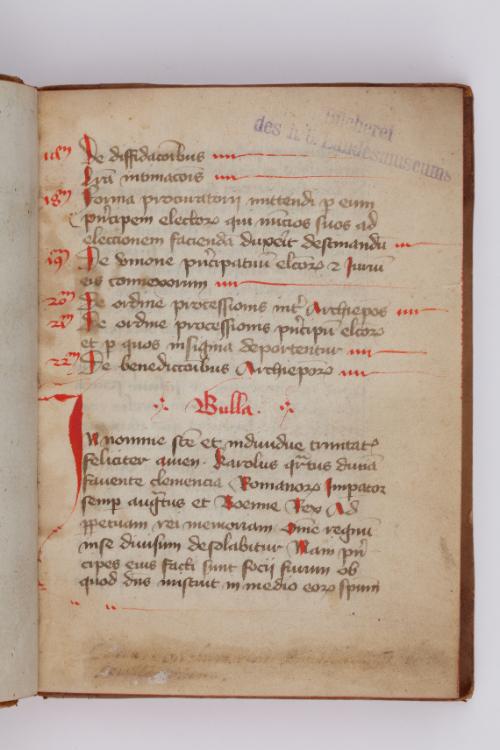 Bücherei
des n. ö. Landesmuseums
De diffidacoibus
Forma procuratorij mittendi p eum
pncipem electorꝫ qui nuncios suos ad
electionem facienda duxerit destinandū
19m De vnione pncipatuū elcorꝫ ⁊ Iuriū
eis connexorum
20m De ordine processionis intꝰ Archiepos
21m De ordine processionis pncipū elcorꝫ
et p quos insignia deportentur
22m De benedictioibus Archieporꝫ
Bulla.
In nomine scte et indiuidue trinitatꝭ
feliciter amen. Karolus qrtus diuīa
fauente clemencia Romanorꝫ Impator
semp augustus et Boemie Rex Ad
ppetuam rei memoriam Omne regnū
inse diuisum desolabitur Nam pn
cipes eius facti sunt socii furum ob
quod dns miscuit in medio eorꝫ spum